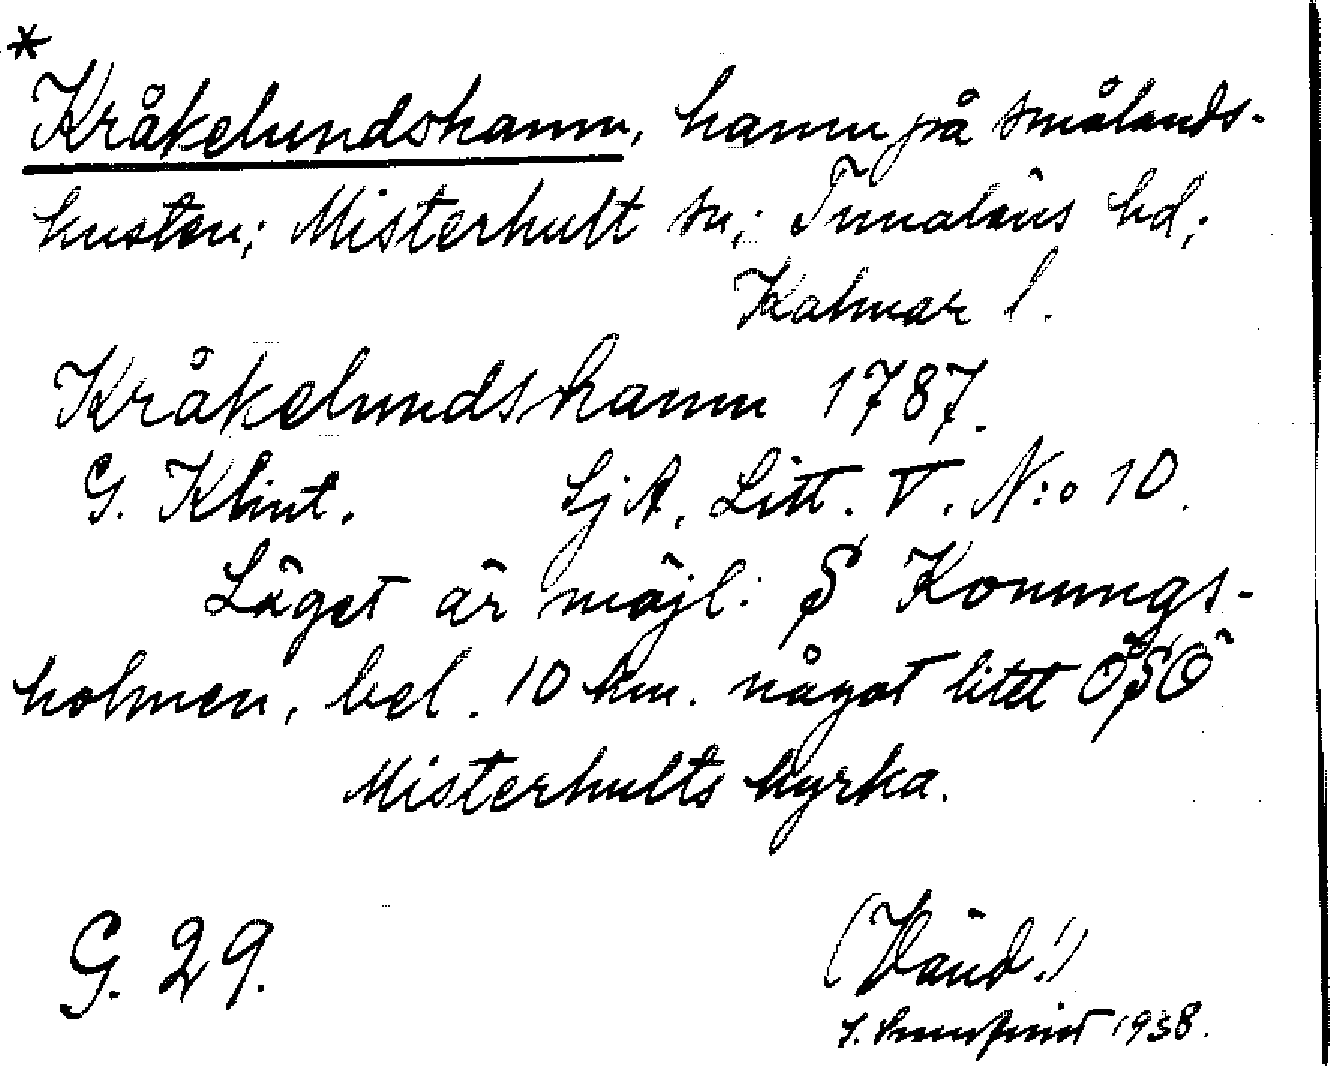 *
Kråkelundshamn, hamn på smålands-
kusten; Misterhult sn; Tunaläns hd;
Kalmar l.
Kråkelundshamn 1787.
G. Klint. SjA. Litt. V. N:o 10.
Läget är möjl: S Konungs-
holmen, bel. 10 km. något litet ÖSÖ
Misterhults kyrka.
G. 29.
(Vänd!)
1938.